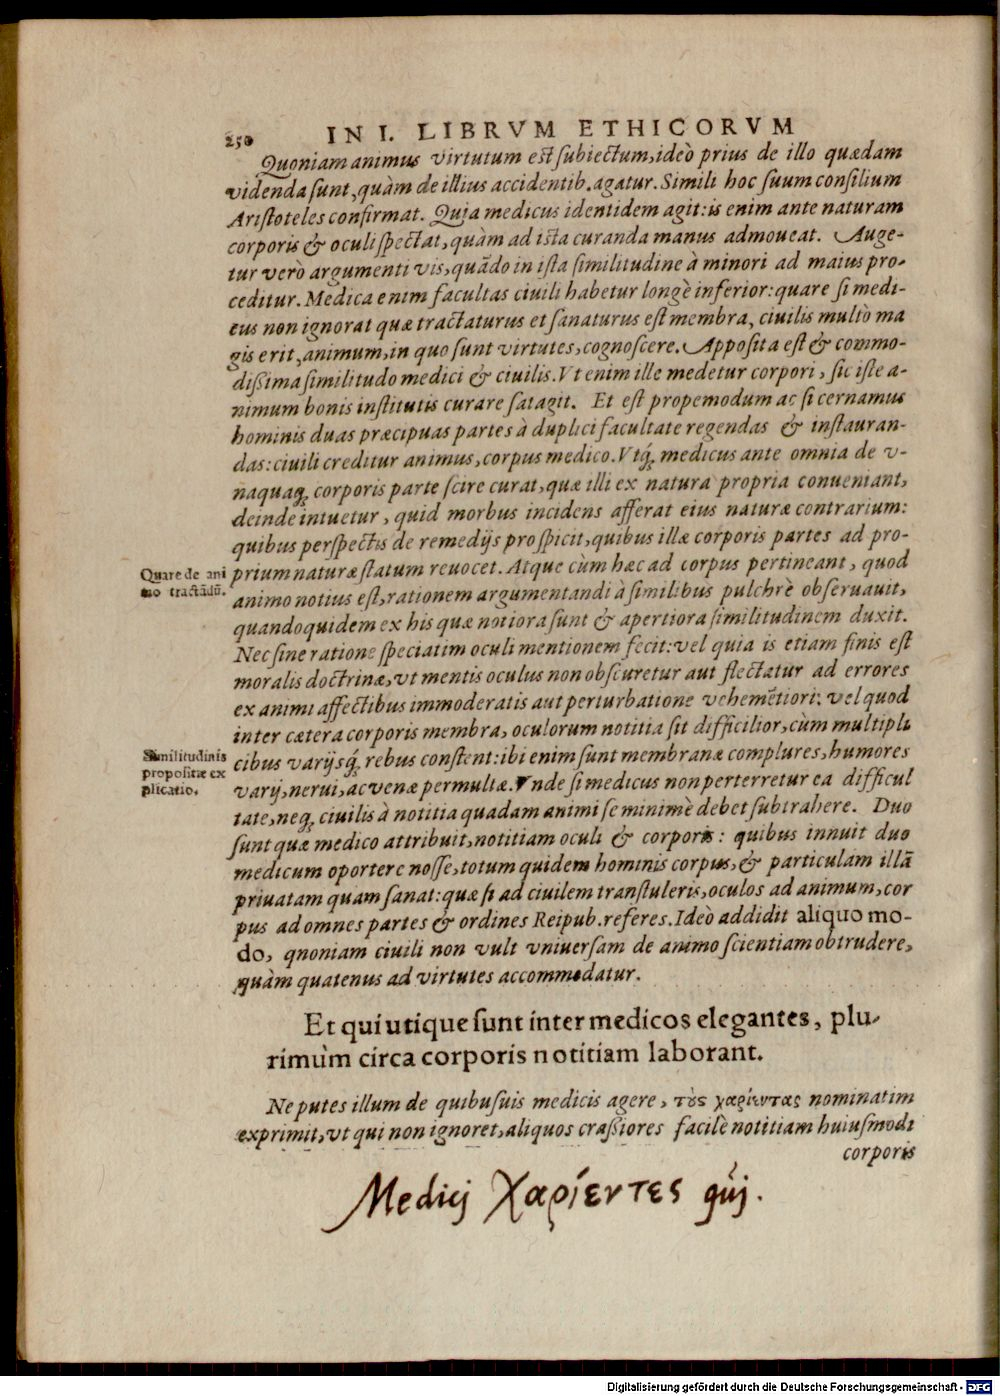 250 IN I. LIBRVM ETHICORVM
Quoniam animus virtutum est subiectum, ideò prius de illo quædam
videnda sunt, quàm de illius accidentib. agatur. Simili hoc suum consilium
Aristoteles confirmat. Quia medicus identidem agit: is enim ante naturam
corporis & oculi spectat, quàm ad ista curanda manus admoueat. Auge-
tur verò argumenti vis, quādo in ista similitudine à minori ad maius pro-
ceditur. Medica enim facultas ciuili habetur longè inferior: quare si medi-
cus non ignorat quæ tractaturus et sanaturus est membra, ciuilis multò ma
gis erit, animum, in quo sunt virtutes, cognoscere. Apposita est & commo-
dißima similitudo medici & ciuilis. Vt enim ille medetur corpori, sic iste a-
nimum bonis institutis curare satagit. Et est propemodum ac si cernamus
hominis duas præcipuas partes à duplici facultate regendas & instauran-
das: ciuili creditur animus, corpus medico. Vtq́; medicus ante omnia de v-
naquaq; corporis parte scire curat, quæ illi ex natura propria conueniant,
deinde intuetur, quid morbus incidens afferat eius naturæ contrarium:
quibus perspectis de remedijs prospicit, quibus illæ corporis partes ad pro-
Quare de ani
mo tractādū.
prium naturæ statum reuocet. Atque cùm hæc ad corpus pertineant, quod
animo notius est, rationem argumentandi à similibus pulchrè obseruauit,
quandoquidem ex his quæ notiora sunt & apertiora similitudinem duxit.
Nec sine ratione speciatim oculi mentionem fecit: vel quia is etiam finis est
moralis doctrinæ, vt mentis oculus non obscuretur aut flectatur ad errores
ex animi affectibus immoderatis aut perturbatione vehemētiori: vel quod
inter cætera corporis membra, oculorum notitia sit difficilior, cùm multipli
Similitudinis
propositæ ex
plicatio.
cibus varijsq́; rebus constent: ibi enim sunt membranæ complures, humores
varij, nerui, ac venæ permultæ. Vnde si medicus non perterretur ea difficul
tate, neq; ciuilis à notitia quadam animi se minimè debet subtrahere. Duo
sunt quæ medico attribuit, notitiam oculi & corporis: quibus innuit duo
medicum oportere nosse, totum quidem hominis corpus, & particulam illā
priuatam quam sanat: quæ si ad ciuilem transtuleris, oculos ad animum, cor
pus ad omnes partes & ordines Reipub. referes. Ideò addidit aliquo mo-
do, qnoniam ciuili non vult vniuersam de animo scientiam obtrudere,
quàm quatenus ad virtutes accommodatur.
Et qui utique sunt inter medicos elegantes, plu-
rimùm circa corporis notitiam laborant.
Ne putes illum de quibusuis medicis agere, τοὺς χαρίεντας nominatim
exprimit, vt qui non ignoret, aliquos craßiores facilè notitiam huiusmodi
corporis
Medicj χαρίεντες quj.
Digitalisierung gefördert durch die Deutsche Forschungsgemeinschaft - DFG